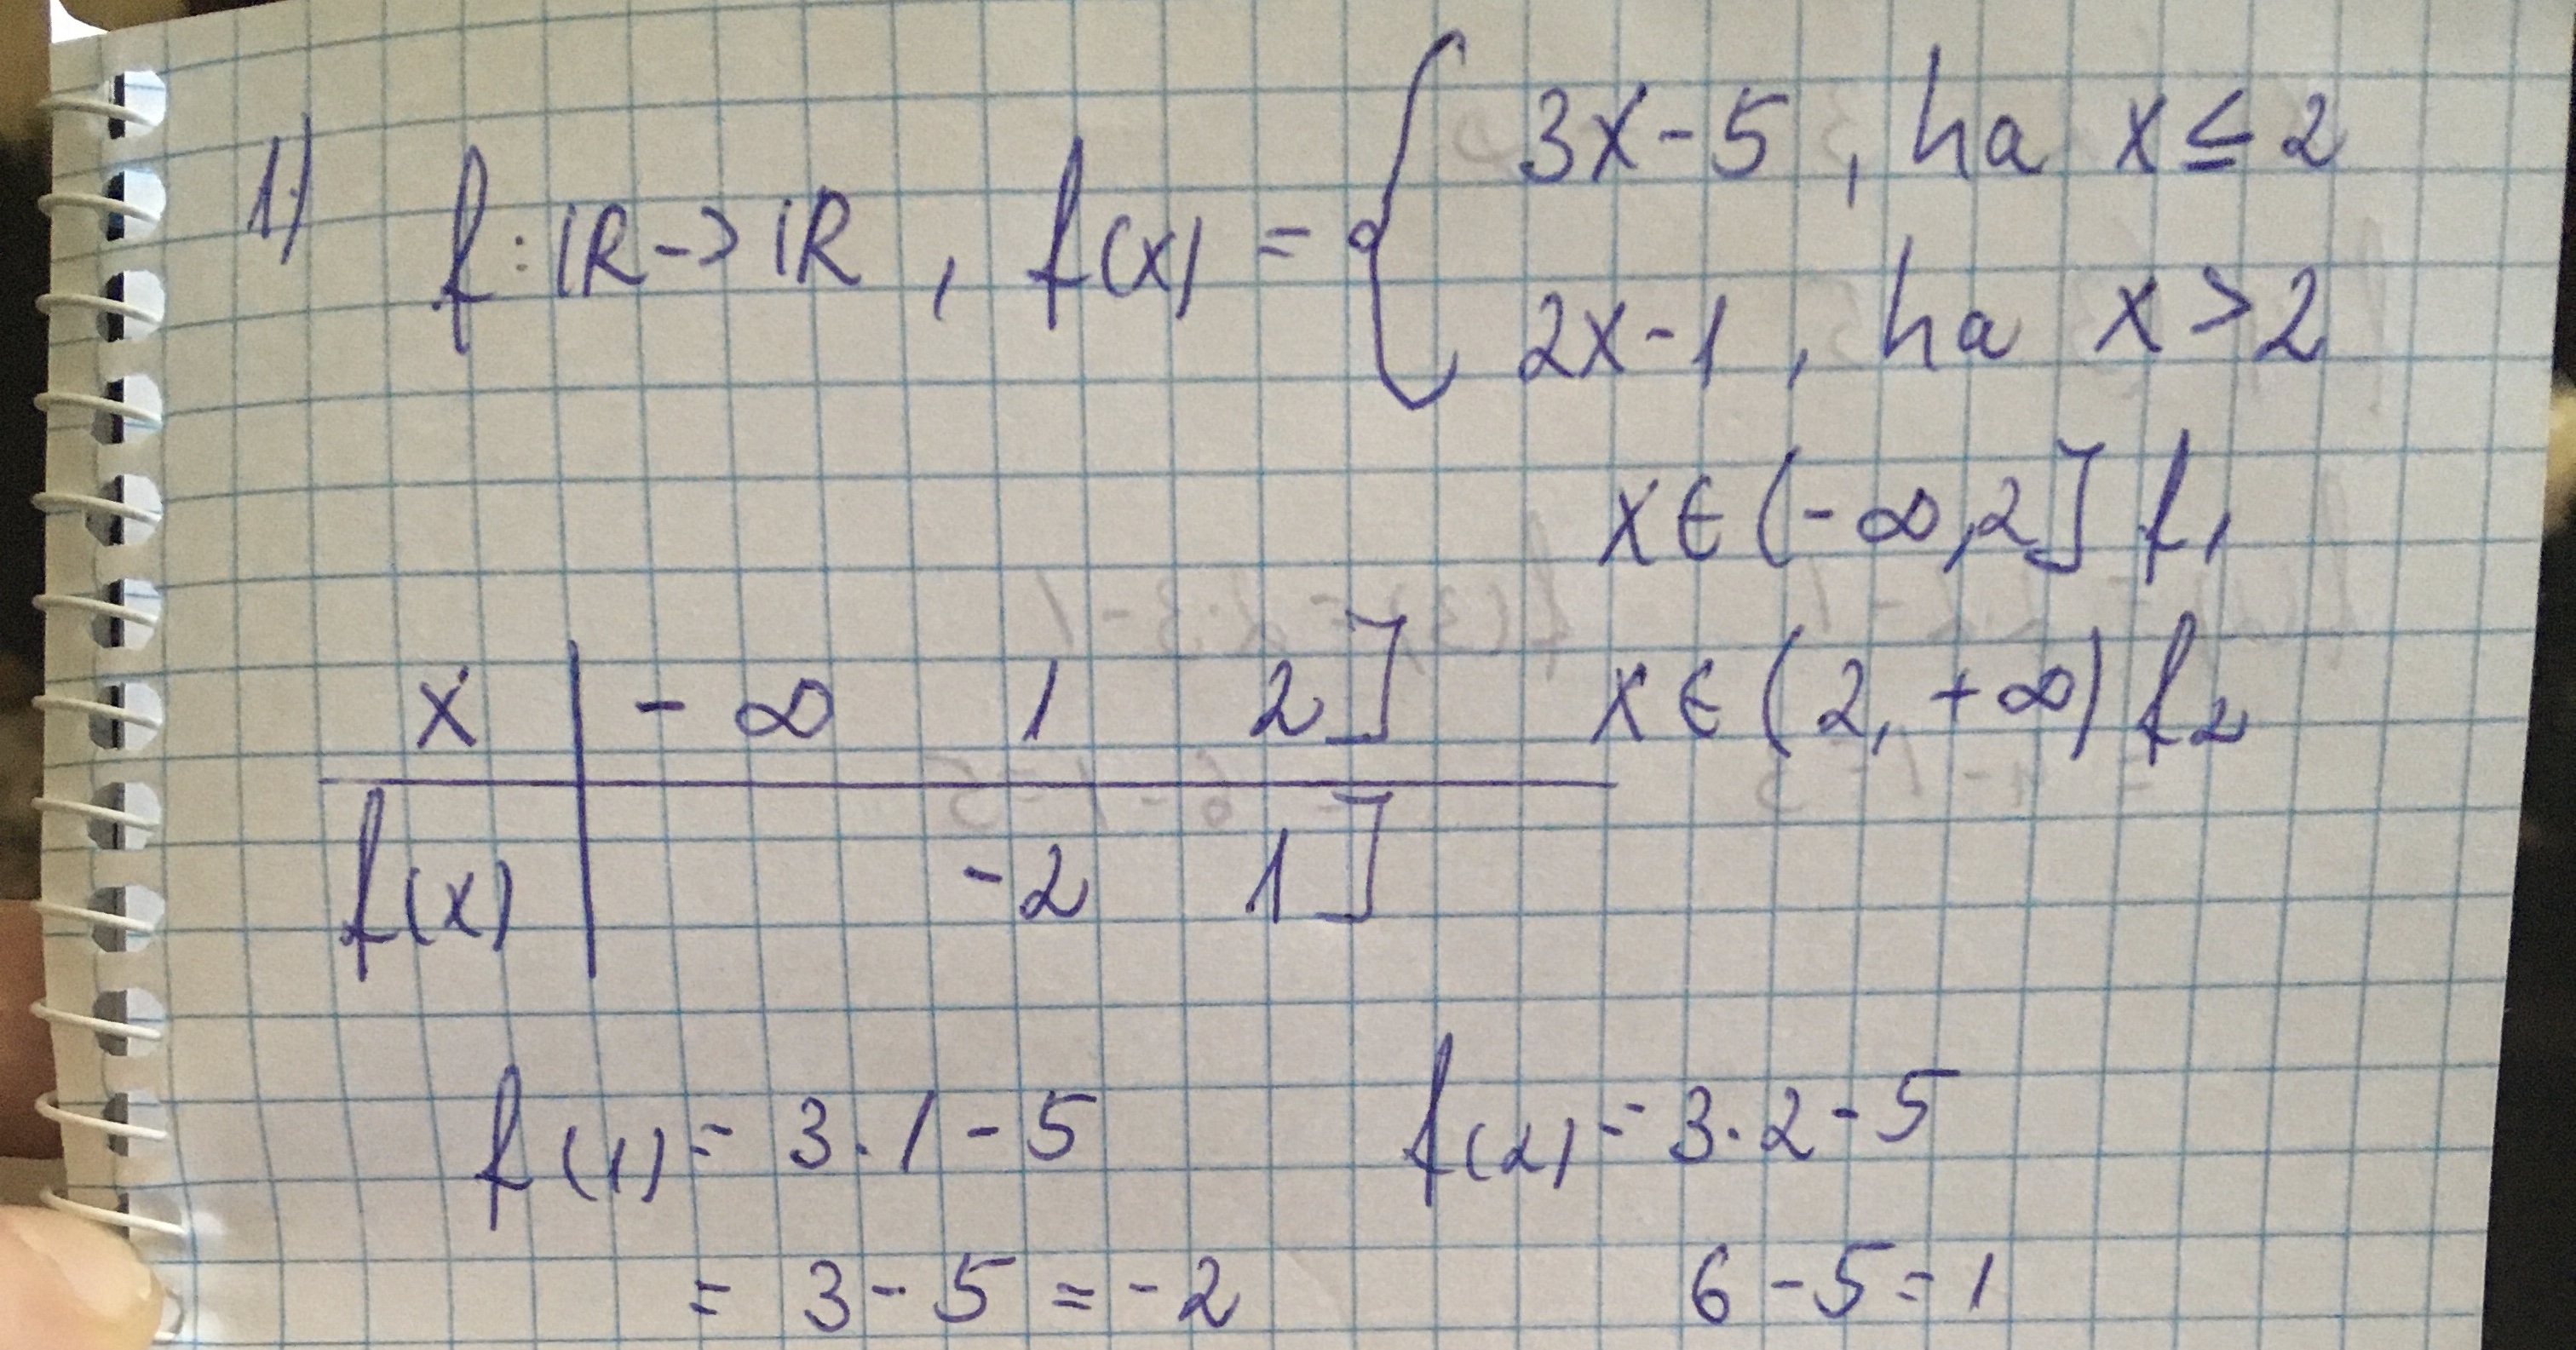 1) f: ℝ → ℝ, f(x) = { 3x - 5, ha x ≤ 2
2x - 1, ha x > 2
x ∈ (-∞, 2] f₁
x ∈ (2, +∞) f₂
x | -∞ 1 2]
f(x) | -2 1]
f(1) = 3·1 - 5 f(2) = 3·2 - 5
= 3 - 5 = -2 6 - 5 = 1